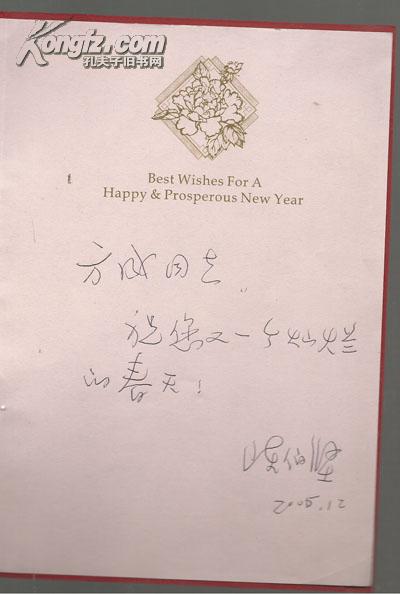 Kongfz.com
孔夫子旧书网
Best Wishes For A
Happy & Prosperous New Year
方成同志
祝您又一个灿烂
的春天！
伯坚
2005.12